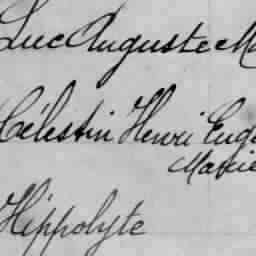 Luc Auguste Ma
Célestin Henri Eugè
Marie
Hippolyte